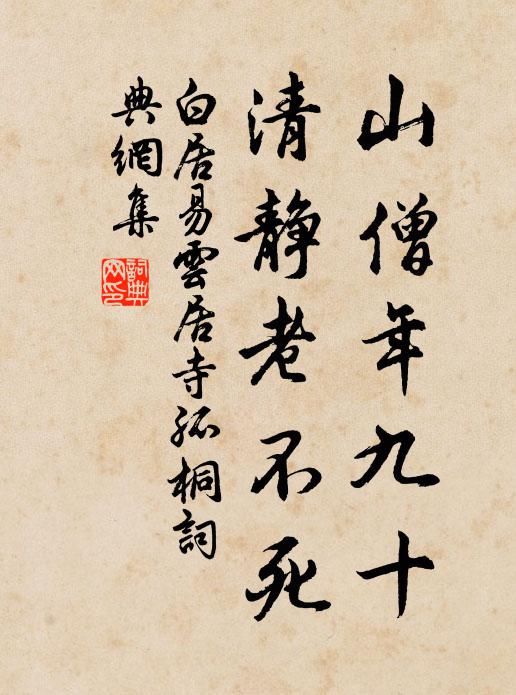 山僧年九十
清静老不死
白居易雲居寺孤桐詞
典網集
詞典
网印